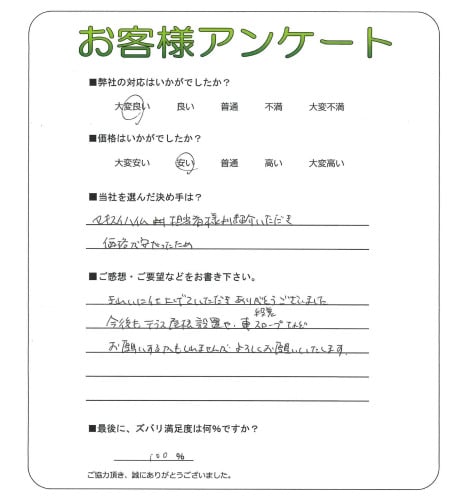 お客様アンケート
■弊社の対応はいかがでしたか？
大変良い 良い 普通 不満 大変不満
■価格はいかがでしたか？
大変安い 安い 普通 高い 大変高い
■当社を選んだ決め手は？
担当者様より紹介いただき
価格が安かったため
■ご感想・ご要望などをお書き下さい。
きれいに仕上げていただきありがとうございました
今後もテラス屋根設置や、車スロープ
お願いするかもしれませんが よろしくお願いいたします。
■最後に、ズバリ満足度は何％ですか？
100 %
ご協力頂き、誠にありがとうございました。